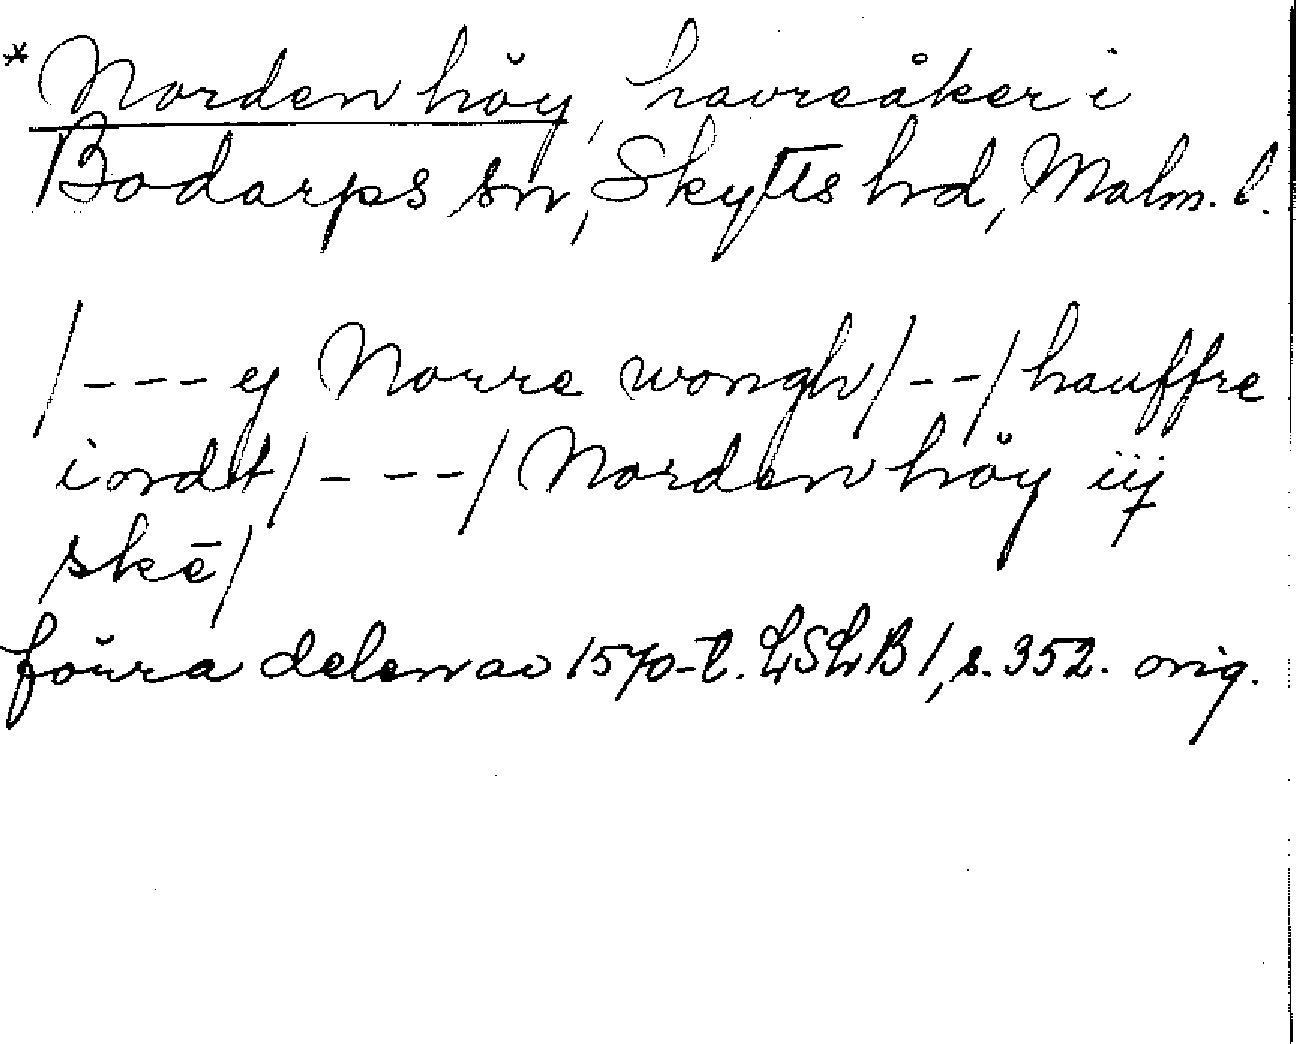 * Norden höy, havreåker i
Bodarps sn, Skytts hd, Malm. l.
/---ej Norre wongh/--/hauffre
iordt/---/Norden höy iij
skē/
förra delen av 1570-t. LSLB 1, s. 352. orig.